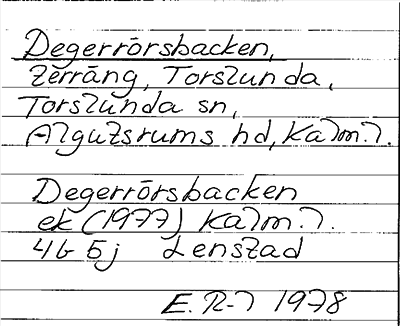 Degerrörsbacken,
Terräng, Torslunda,
Torslunda sn,
Algutsrums hd, Kalm. l.
Degerrörsbacken
ek (1977) Kalm. l.
4G 5j Lenstad
E. R-l 1978